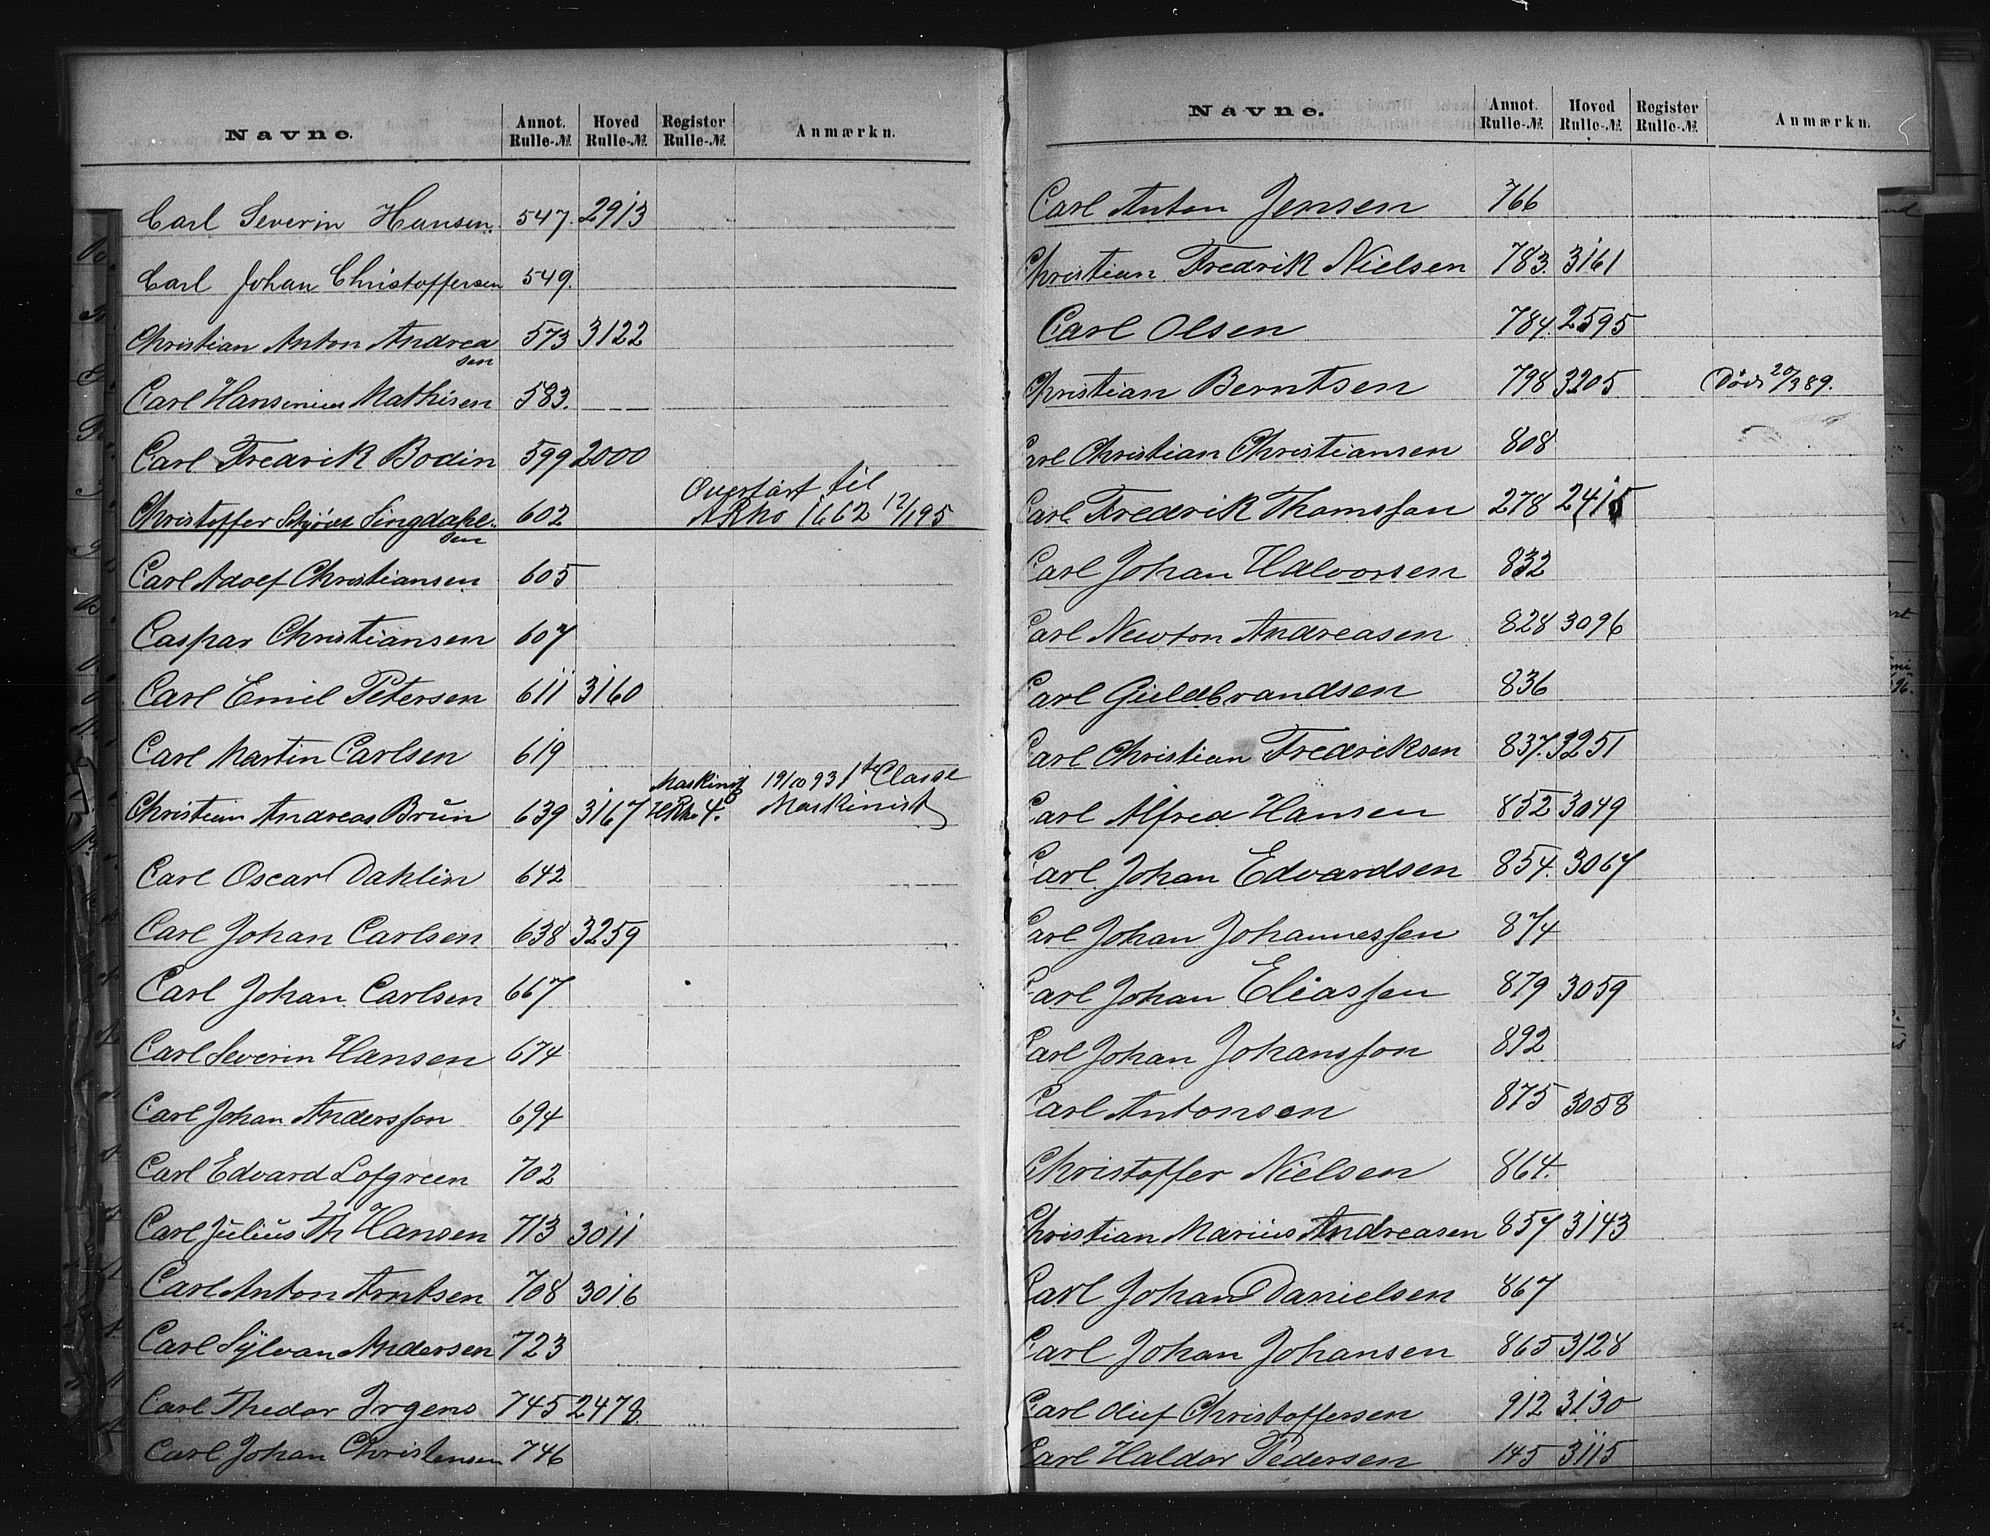 Navne. Annot. Rulle-№ Hoved Rulle-№ Register Rulle-№ Anmærkn.
Carl Severin Hansen. 547. 2913
Carl Johan Christoffersen 549.
Christian Anton Andrea
sen 573 3122
Carl Hansinius Mathisen 583.
Carl Fredrik Bodin 599 2000
Overført til
Christoffer Singdahl- 602 1662 12/1 95
sen
Carl Adolf Christiansen 605
Caspar Christiansen 607
Carl Emil Petersen 611 3160
Carl Martin Carlsen 619
Maskinist 19/10 93 1ste Classe
Christian Andreas Brun 639 3167 HRNo 4. Maskinist
Carl Oscar Dahlin 642
Carl Johan Carlsen 638 3259
Carl Johan Carlsen 667
Carl Severin Hansen 674
Carl Johan Andersson 694
Carl Edvard Lofgreen 702
Carl Julius Th Hansen 713 3011
Carl Anton Arntsen 708 3016
Carl Sylvan Andersen 723
Carl Thedor Irgens 745 2478
Carl Johan Christensen 746
Navne. Annot. Rulle-№ Hoved Rulle-№ Register Rulle-№ Anmærkn.
Carl Anton Jensen 766
Christian Fredrik Nielsen 783. 3161
Carl Olsen 784. 2595
Christian Berntsen 798 3205 Død 20/3 89.
Carl Christian Christiansen 808
Carl Fredrik Thomsson 278 2415
Carl Johan Halvorsen 832
Carl Newton Andreasen 828 3096
Carl Guldbrandsen 836
Carl Christian Fredriksen 837. 3251
Carl Alfred Hansen 852 3049
Carl Johan Edvardsen 854. 3067
Carl Johan Johannessen 874
Carl Johan Eliassen 879 3059
Carl Johan Johansson 892
Carl Antonsen 875 3058
Christoffer Nielsen 864.
Christian Marius Andreasen 857 3143
Carl Johan Danielsen 867
Carl Johan Johansen 865 3128
Carl Christoffersen 912 3130
Carl Haldor Pedersen 145 3115